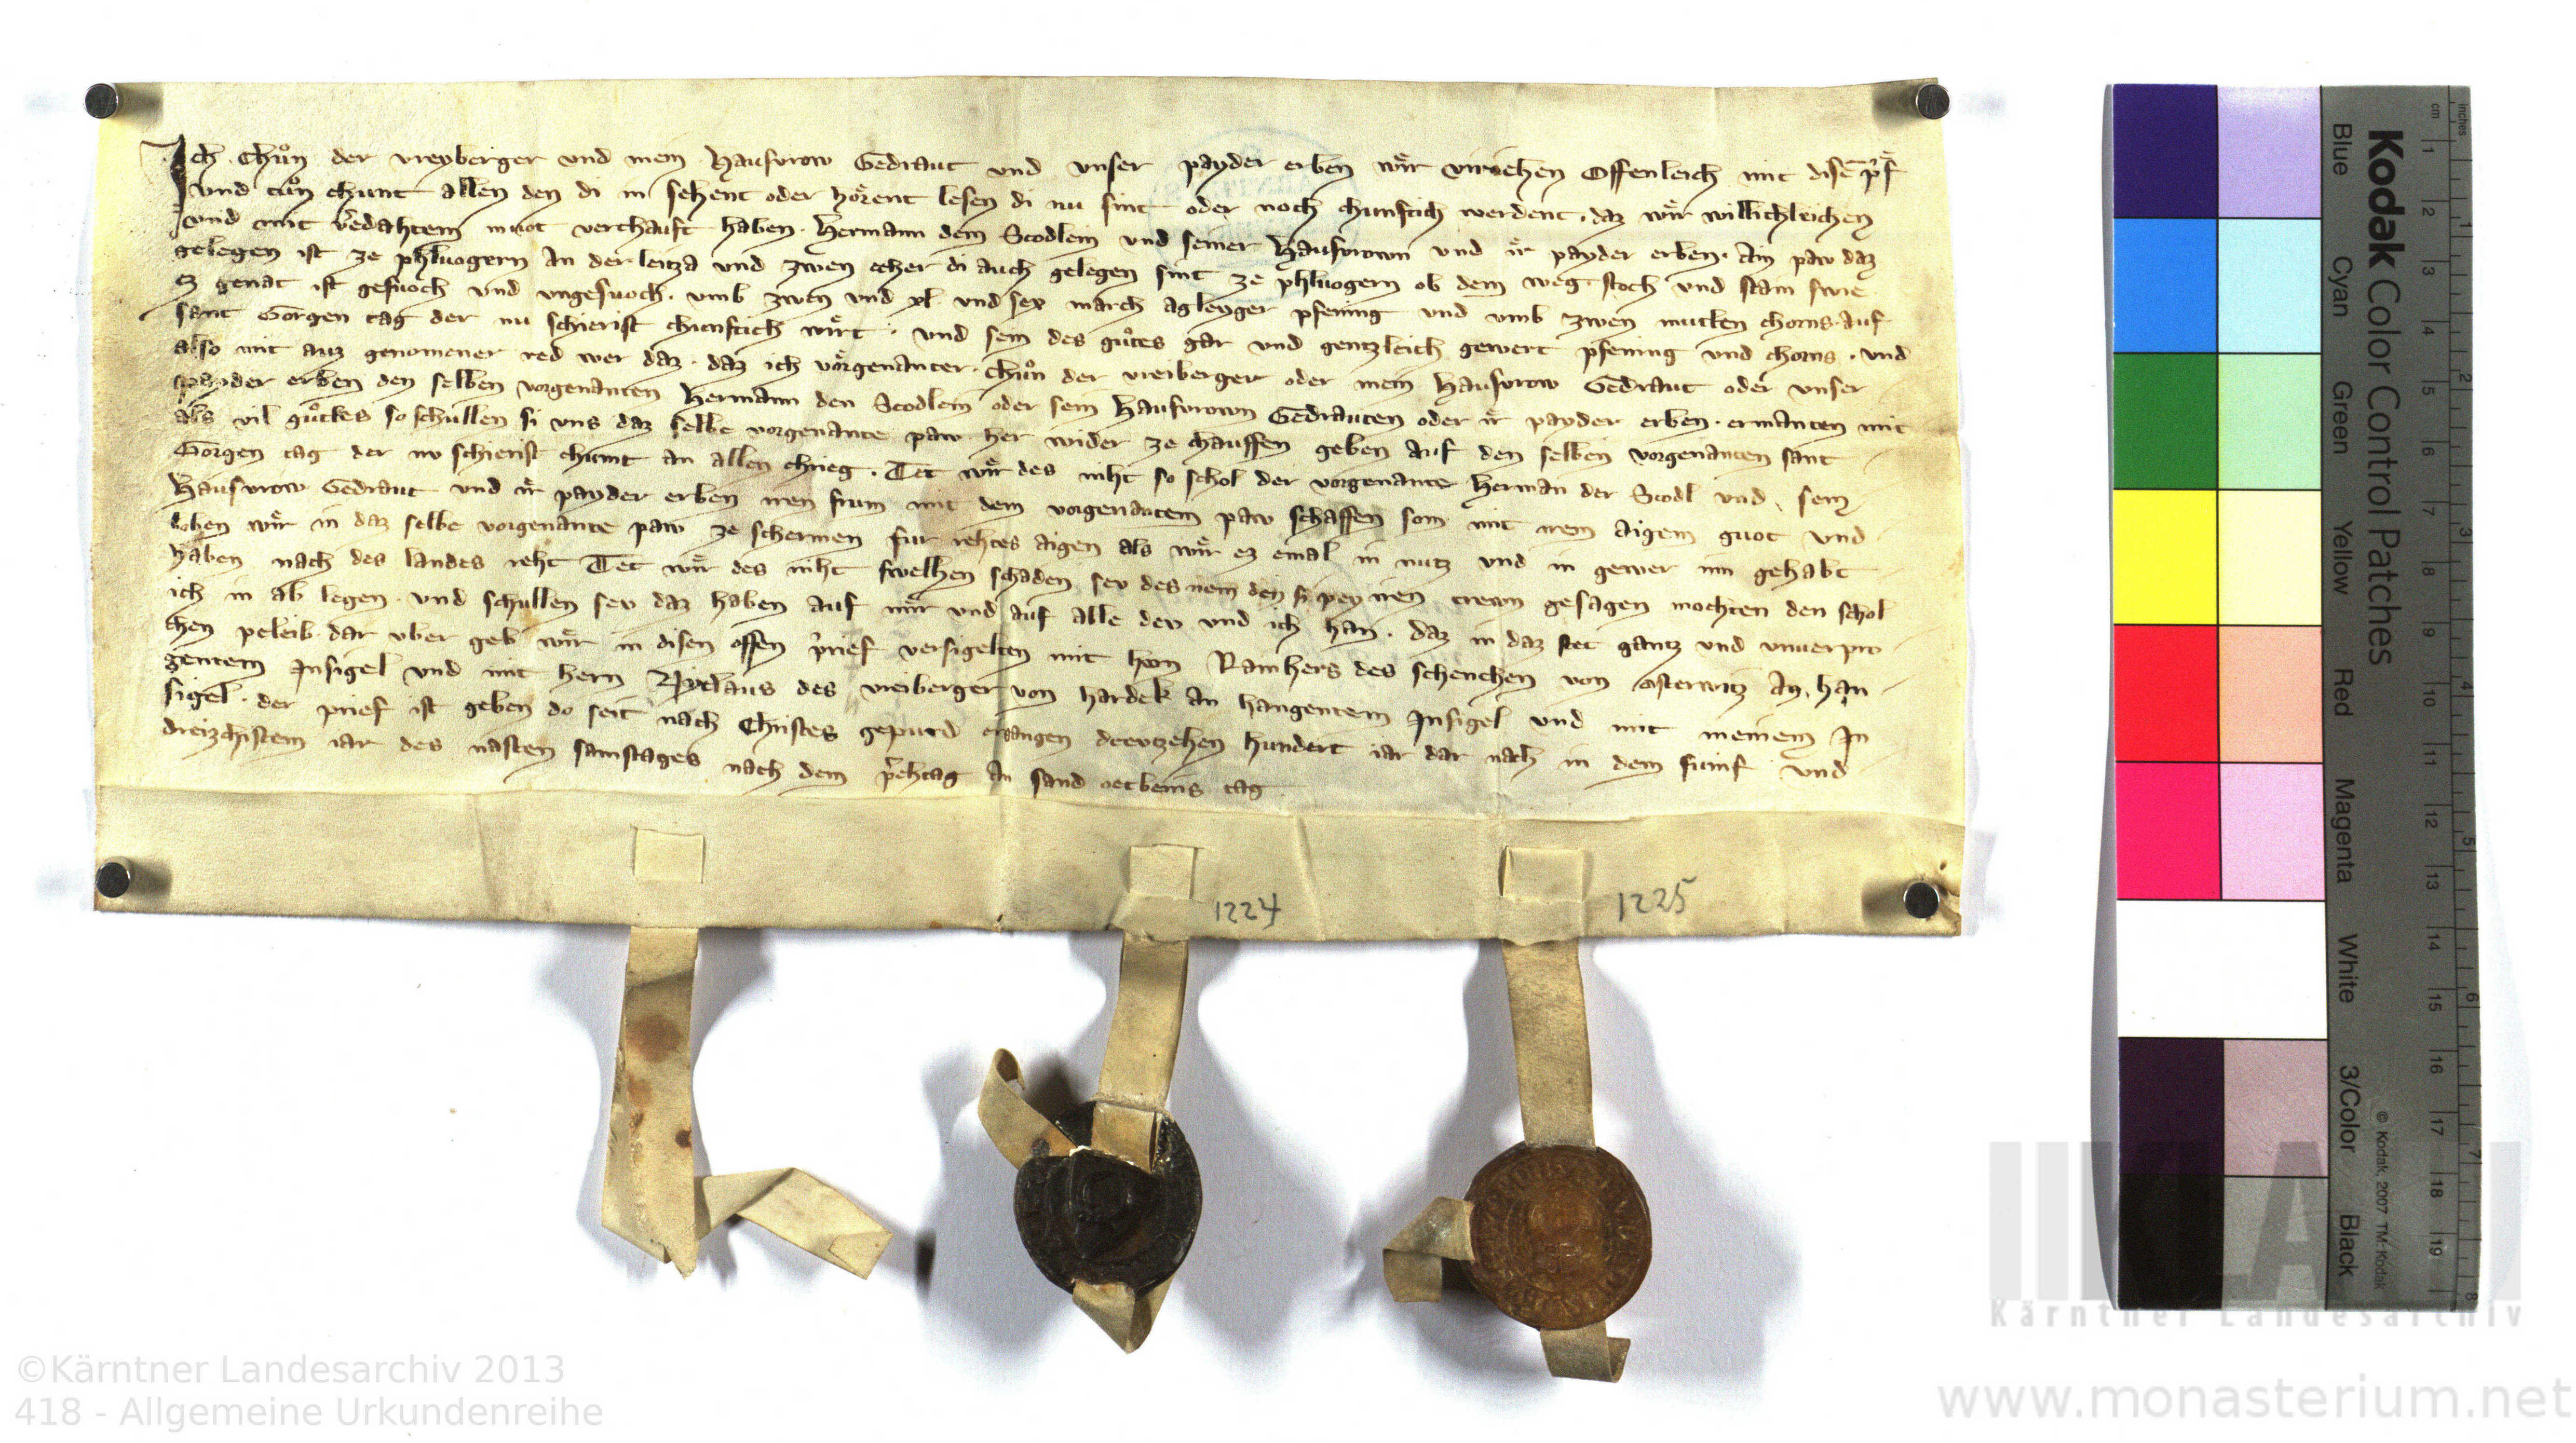 Ich Chuͦn der vreyberger vnd mein Hausvrow Gedraut vnd vnser payder erben wir veriehen Offenleich mit disē pͥf
vnd tuͦn chunt allen den di in sehent oder hoͤrent lesen di nu sint oder noch chunftich werdent. daz wir willichleichen
vnd mit v̾dahtem muot verchauft haben. Hermann dem Stodlein vnd seiner Hausvrown vnd ir payder erben. Ain paw daz
gelegen ist ze phluogern An der leitza vnd zwen echer di auch gelegen sint ze phluogern ob dem weg stoch vnd stain swie
ez genāt ist gesuoch vnd vngesuoch. vmb zwen vnd xl vnd sex march agleyger pfening vnd vmb zwen mutlen chorns. Auf
sant Gorgen tag der nu schierist chunftich wirt. vnd sein des guͦtes gar vnd gentzleich gewert pfening vnd chorns. vnd
also mit auz genomener red wer daz. daz ich vorgenanter. Chuͦn der vreiberger oder mein Hausvrow Gedraut oder vnser
payder erben den selben vorgenanten Hermann den Stodlein oder sein Hausvrown Gedrauten oder ir payder erben. ermanten mit
als vil guͦtes so schullen si vns daz selbe vorgenante paw her wider ze chauffen geben auf den selben vorgenanten sant
Gorgen tag der nv schierist chumt an allen chrieg. Tet wir des niht so schol der vorgenante Herman der Stodl vnd sein
Hausvrow Gedraut vnd ir payder erben iren frum mit dem vorgenantem paw schaffen som mit irem aigem guot vnd
loben wir in daz selbe vorgenante paw ze schermen fur rehtes aigen als wir ez emal in nutz vnd in gewer inn gehabt
haben nach des landes reht Tet wir des niht swelhen schaden sev des nem den si pey iren trewn gesagen mochten den schol
ich in ab legen. vnd schullen sev daz haben auf mir vnd auf alle dev vnd ich han. daz in daz stet gantz vnd vnuerpro
chen peleib. dar vber geb wir in disen offen pͥrief versigelten mit hern Rainhers des schenchen von osterwitz An han
gentem Insigel vnd mit hern Nyclaus des vreiberger von hardek An hangentem Insigel vnd mit meinem In
sigel. der prief ist geben do seit nach Christes gepurd ergangen drevtzehen hundert iar dar nach in dem fumf vnd
dreizchistem iar des nasten samstages nach dem pͥrehtag An sand tag
1224
1225
Kodak Color Control Patches
Blue Cyan Green Yellow Red Magenta White 3/Color Black
© Kodak, 2007 TM: Kodak
inches
cm
1 2 3 4 5 6 7 8
1 2 3 4 5 6 7 8 9 10 11 12 13 14 15 16 17 18 19
KLA
Kärntner Landesarchiv
©Kärntner Landesarchiv 2013
418 - Allgemeine Urkundenreihe
www.monasterium.net